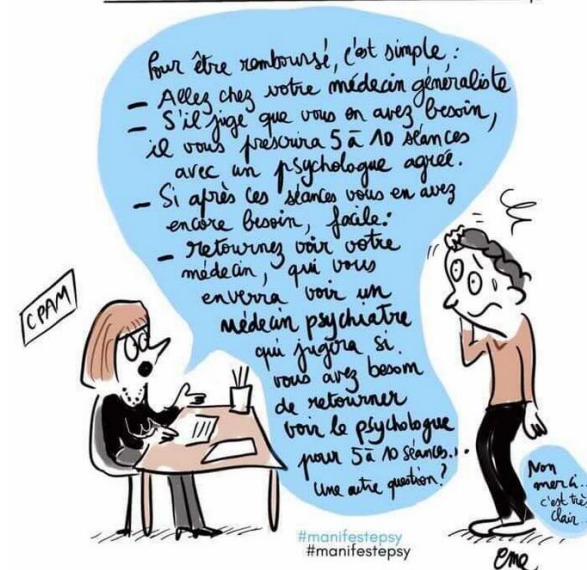 Pour être remboursé, c'est simple :
– Allez chez votre médecin généraliste
– S'il juge que vous en avez besoin,
il vous prescrira 5 à 10 séances
avec un psychologue agréé.
– Si après ces séances vous en avez
encore besoin, facile :
– retournez voir votre
médecin, qui vous
enverra voir un
médecin psychiatre
qui jugera si
vous avez besoin
de retourner
voir le psychologue
pour 5 à 10 séances...
Une autre question ?
CPAM
Non
merci..
c'est très
clair..
#manifestepsy
#manifestepsy